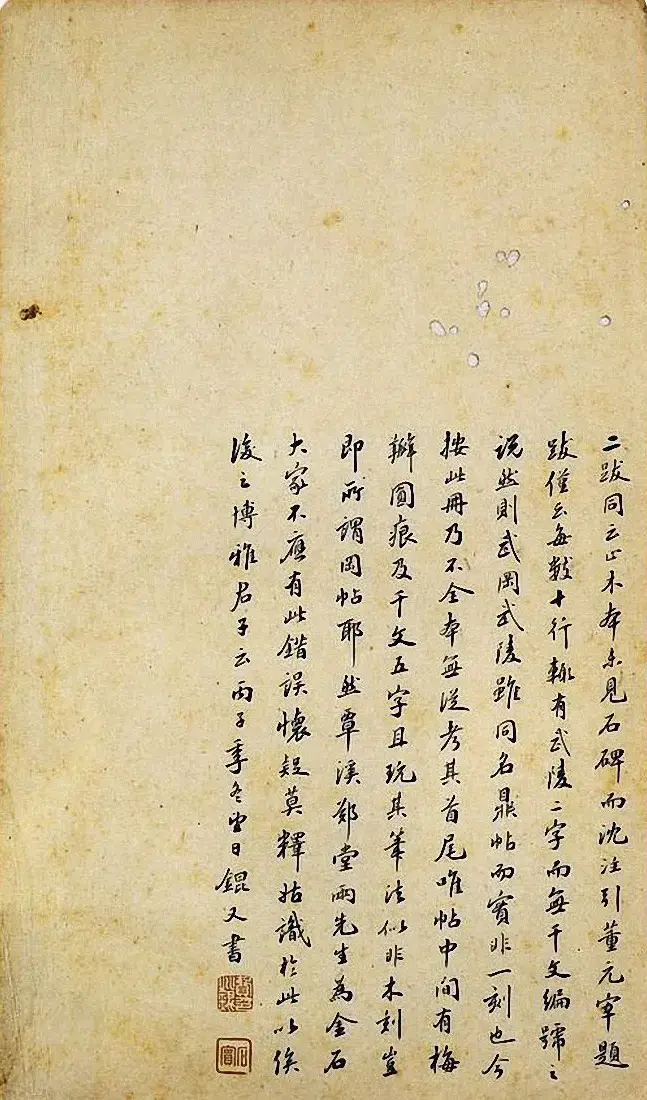 二跋同云止木本未見石碑而沈注引董元宰題
跋僅云每數十行輒有武陵二字而無千文編號之
説然則武岡武陵雖同名鼎帖而實非一刻也今
按此冊乃不全本無從考其首尾唯帖中間有梅
瓣圓痕及千文五字且玩其筆法似非木刻豈
即所謂岡帖耶然覃溪鄭堂兩先生為金石
大家不應有此錯誤懷疑莫釋姑識於此以俟
後之博雅君子云丙子季冬望日錕又書